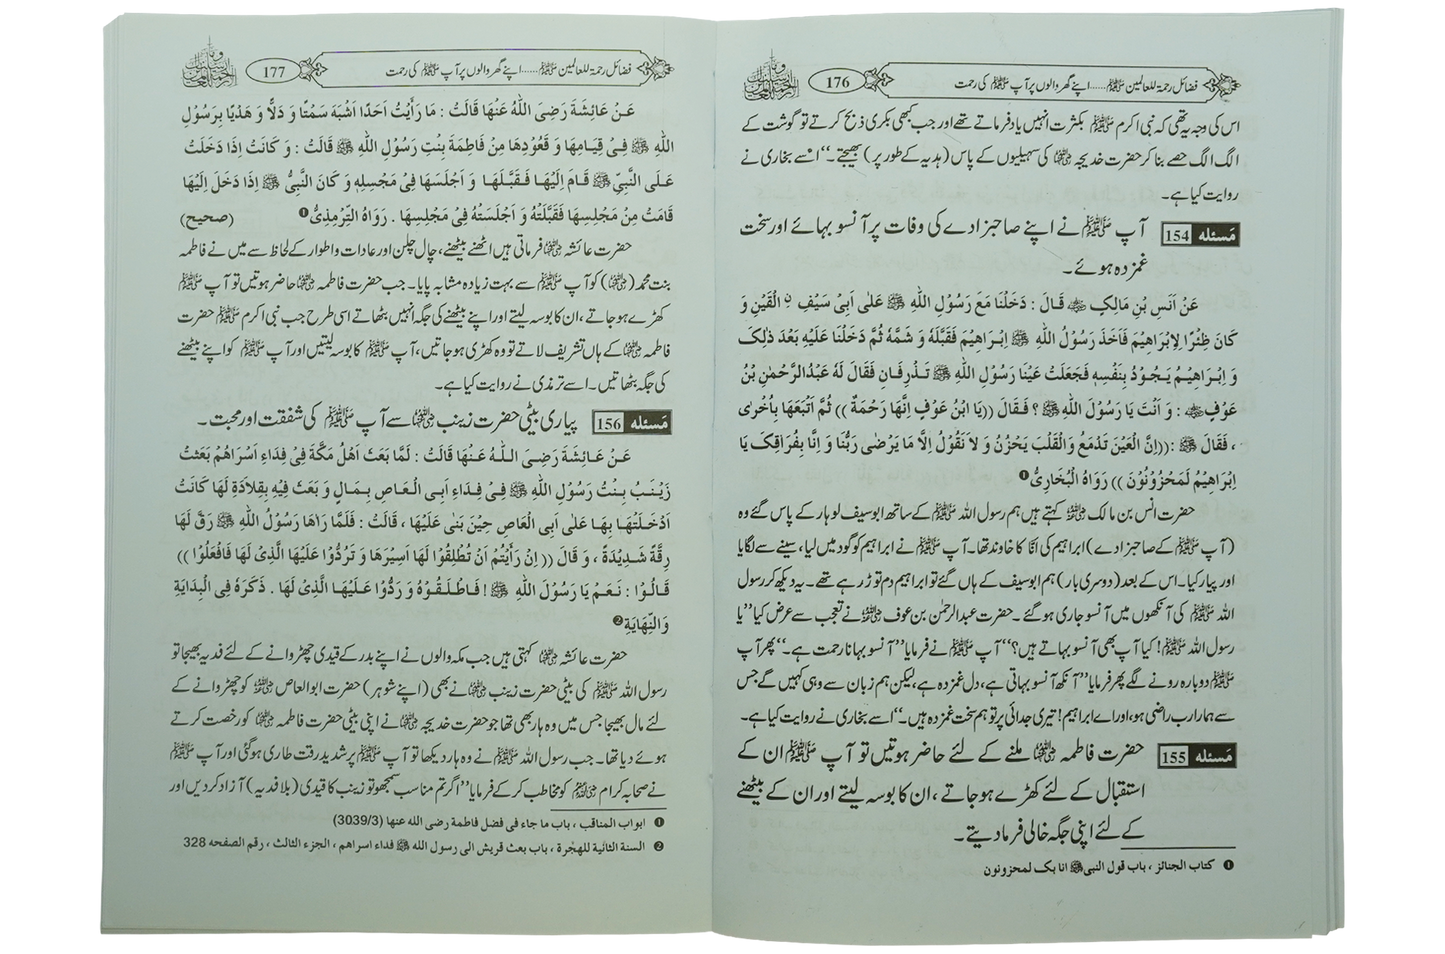 176 فضائل رحمۃ للعالمین ﷺ......اپنے گھر والوں پر آپ ﷺ کی رحمت
اس کی وجہ یہ تھی کہ نبی اکرم ﷺ بکثرت انہیں یاد فرماتے تھے اور جب کبھی بکری ذبح کرتے تو گوشت کے
الگ الگ حصے بنا کر حضرت خدیجہ رضی اللہ عنہا کی سہیلیوں کے پاس (ہدیہ کے طور پر) بھیجتے۔“ اسے بخاری نے
روایت کیا ہے۔
مسئلہ 154 آپ ﷺ نے اپنے صاحبزادے کی وفات پر آنسو بہائے اور سخت
غمزدہ ہوئے۔
عَنْ اَنَسِ بْنِ مَالِکٍ رضی اللہ عنہ قَالَ : دَخَلْنَا مَعَ رَسُوْلِ اللّٰہِ ﷺ عَلٰی اَبِیْ سَیْفِ نِ الْقَیْنِ وَ
کَانَ ظِئْرًا لِاِبْرَاهِیْمَ فَاَخَذَ رَسُوْلُ اللّٰہِ ﷺ اِبْرَاهِیْمَ فَقَبَّلَهٗ وَ شَمَّهٗ ثُمَّ دَخَلْنَا عَلَیْهِ بَعْدَ ذٰلِکَ
وَ اِبْرَاهِیْمُ یَجُوْدُ بِنَفْسِهٖ فَجَعَلَتْ عَیْنَا رَسُوْلِ اللّٰہِ ﷺ تَذْرِفَانِ فَقَالَ لَهٗ عَبْدُالرَّحْمٰنِ بْنُ
عَوْفٍ رضی اللہ عنہ : وَ اَنْتَ یَا رَسُوْلَ اللّٰہِ ﷺ ؟ فَقَالَ ((یَا ابْنُ عَوْفٍ اِنَّهَا رَحْمَةٌ )) ثُمَّ اَتْبَعَهَا بِاُخْرٰی
، فَقَالَ ﷺ :((اِنَّ الْعَیْنَ تَدْمَعُ وَالْقَلْبَ یَحْزُنُ وَ لَا نَقُوْلُ اِلَّا مَا یَرْضٰی رَبُّنَا وَ اِنَّا بِفُرَاقِکَ یَا
اِبْرَاهِیْمُ لَمَحْزُوْنُوْنَ )) رَوَاهُ الْبُخَارِیُّ ❶
حضرت انس بن مالک رضی اللہ عنہ کہتے ہیں ہم رسول اللہ ﷺ کے ساتھ ابوسیف لوہار کے پاس گئے وہ
(آپ ﷺ کے صاحبزادے) ابراہیم کی انّا کا خاوند تھا۔ آپ ﷺ نے ابراہیم کو گود میں لیا، سینے سے لگایا
اور پیار کیا۔ اس کے بعد (دوسری بار) ہم ابوسیف کے ہاں گئے تو ابراہیم دم توڑ رہے تھے۔ یہ دیکھ کر رسول
اللہ ﷺ کی آنکھوں میں آنسو جاری ہو گئے۔ حضرت عبدالرحمٰن بن عوف رضی اللہ عنہ نے تعجب سے عرض کیا ”یا
رسول اللہ ﷺ! کیا آپ بھی آنسو بہاتے ہیں؟“ آپ ﷺ نے فرمایا ”آنسو بہانا رحمت ہے۔“ پھر آپ
ﷺ دوبارہ رونے لگے پھر فرمایا ”آنکھ آنسو بہاتی ہے، دل غمزدہ ہے، لیکن ہم زبان سے وہی کہیں گے جس
سے ہمارا رب راضی ہو، اور اے ابراہیم! تیری جدائی پر تو ہم سخت غمزدہ ہیں۔“ اسے بخاری نے روایت کیا ہے۔
مسئلہ 155 حضرت فاطمہ رضی اللہ عنہا ملنے کے لئے حاضر ہوتیں تو آپ ﷺ ان کے
استقبال کے لئے کھڑے ہو جاتے، ان کا بوسہ لیتے اور ان کے بیٹھنے
کے لئے اپنی جگہ خالی فرما دیتے۔
❶ کتاب الجنائز ، باب قول النبی ﷺ انا بک لمحزونون
177 فضائل رحمۃ للعالمین ﷺ......اپنے گھر والوں پر آپ ﷺ کی رحمت
عَنْ عَائِشَةَ رَضِیَ اللّٰهُ عَنْهَا قَالَتْ : مَا رَأَیْتُ اَحَدًا اَشْبَهَ سَمْتًا وَ دَلًّا وَ هَدْیًا بِرَسُوْلِ
اللّٰہِ ﷺ فِیْ قِیَامِهَا وَ قُعُوْدِهَا مِنْ فَاطِمَةَ بِنْتِ رَسُوْلِ اللّٰہِ ﷺ قَالَتْ : وَ کَانَتْ اِذَا دَخَلَتْ
عَلَی النَّبِیِّ ﷺ قَامَ اِلَیْهَا فَقَبَّلَهَا وَ اَجْلَسَهَا فِیْ مَجْلِسِهٖ وَ کَانَ النَّبِیُّ ﷺ اِذَا دَخَلَ اِلَیْهَا
قَامَتْ مِنْ مَجْلِسِهَا فَقَبَّلَتْهُ وَ اَجْلَسَتْهُ فِیْ مَجْلِسِهَا . رَوَاهُ التِّرْمِذِیُّ ❶ (صحیح)
حضرت عائشہ رضی اللہ عنہا فرماتی ہیں اٹھنے بیٹھنے، چال چلن اور عادات و اطوار کے لحاظ سے میں نے فاطمہ
بنت محمد (رضی اللہ عنہا) کو آپ ﷺ سے بہت زیادہ مشابہ پایا۔ جب حضرت فاطمہ رضی اللہ عنہا حاضر ہوتیں تو آپ ﷺ
کھڑے ہو جاتے، ان کا بوسہ لیتے اور اپنے بیٹھنے کی جگہ انہیں بٹھاتے اسی طرح جب نبی اکرم ﷺ حضرت
فاطمہ رضی اللہ عنہا کے ہاں تشریف لاتے تو وہ کھڑی ہو جاتیں، آپ ﷺ کا بوسہ لیتیں اور آپ ﷺ کو اپنے بیٹھنے
کی جگہ بٹھاتیں۔ اسے ترمذی نے روایت کیا ہے۔
مسئلہ 156 پیاری بیٹی حضرت زینب رضی اللہ عنہا سے آپ ﷺ کی شفقت اور محبت۔
عَنْ عَائِشَةَ رَضِیَ اللّٰهُ عَنْهَا قَالَتْ : لَمَّا بَعَثَ اَهْلُ مَکَّةَ فِیْ فِدَاءِ اَسْرَاهُمْ بَعَثَتْ
زَیْنَبُ بِنْتُ رَسُوْلِ اللّٰہِ ﷺ فِیْ فِدَاءِ اَبِی الْعَاصِ بِمَالٍ وَ بَعَثَ فِیْهِ بِقِلَادَةٍ لَهَا کَانَتْ
اَدْخَلَتْهَا بِهَا عَلٰی اَبِی الْعَاصِ حِیْنَ بَنٰی عَلَیْهَا ، قَالَتْ : فَلَمَّا رَاٰهَا رَسُوْلُ اللّٰہِ ﷺ رَقَّ لَهَا
رِقَّةً شَدِیْدَةً ، وَ قَالَ (( اِنْ رَأَیْتُمْ اَنْ تُطْلِقُوْا لَهَا اَسِیْرَهَا وَ تَرُدُّوْا عَلَیْهَا الَّذِیْ لَهَا فَافْعَلُوْا ))
قَالُوْا : نَعَمْ یَا رَسُوْلَ اللّٰہِ ﷺ ! فَاطْلَقُوْهُ وَ رَدُّوْا عَلَیْهَا الَّذِیْ لَهَا . ذَکَرَهٗ فِی الْبِدَایَةِ
وَالنِّهَایَةِ ❷
حضرت عائشہ رضی اللہ عنہا کہتی ہیں جب مکہ والوں نے اپنے بدر کے قیدی چھڑوانے کے لئے فدیہ بھیجا تو
رسول اللہ ﷺ کی بیٹی حضرت زینب رضی اللہ عنہا نے بھی (اپنے شوہر) حضرت ابو العاص رضی اللہ عنہ کو چھڑوانے کے
لئے مال بھیجا جس میں وہ ہار بھی تھا جو حضرت خدیجہ رضی اللہ عنہا نے اپنی بیٹی حضرت فاطمہ رضی اللہ عنہا کو رخصت کرتے
ہوئے دیا تھا۔ جب رسول اللہ ﷺ نے وہ ہار دیکھا تو آپ ﷺ پر شدید رقت طاری ہو گئی اور آپ ﷺ
نے صحابہ کرام رضی اللہ عنہم کو مخاطب کر کے فرمایا ”اگر تم مناسب سمجھو تو زینب کا قیدی (بلا فدیہ) آزاد کر دیں اور
❶ ابواب المناقب ، باب ما جاء فی فضل فاطمة رضی الله عنها (3039/3)
❷ السنة الثانیة للهجرة ، باب بعث قریش الی رسول الله ﷺ فداء اسراهم ، الجزء الثالث ، رقم الصفحه 328